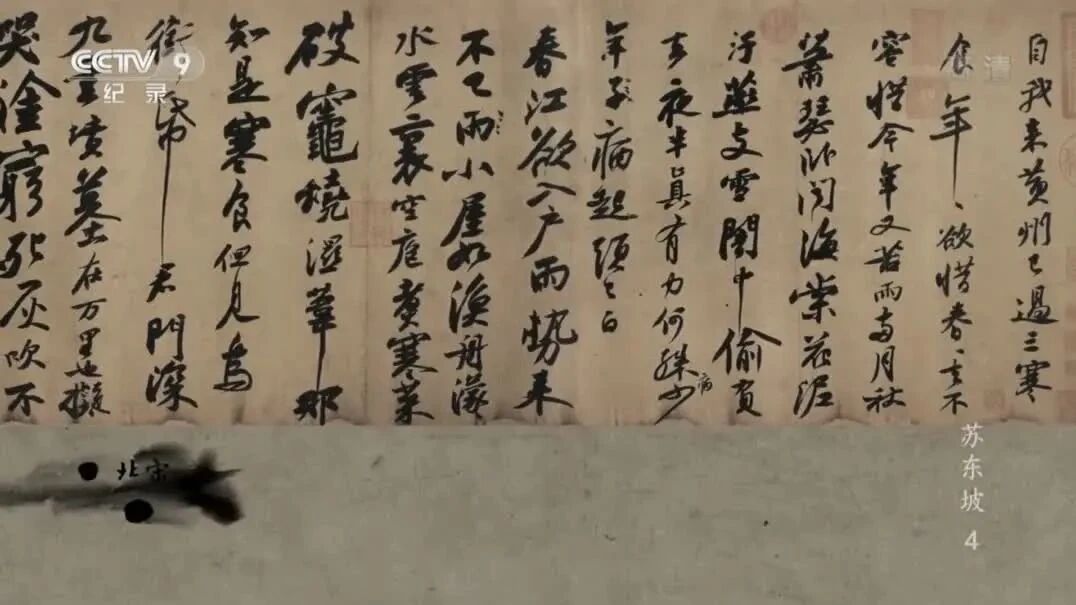 自我来黄州已過三寒
食年〻欲惜春〻去不
容惜今年又苦雨兩月秋
蕭瑟卧聞海棠花泥
汙燕支雪闇中偷負
去夜半真有力何殊少
病
年子病起頭已白
春江欲入户雨勢来
不已雨小屋如漁舟濛
水雲裏空庖煮寒菜
破竈燒濕葦那
知是寒食但見烏
銜帋君門深
九重墳墓在万里也擬
哭塗窮死灰吹不
CCTV 9
纪录
清
苏东坡 4
北宋